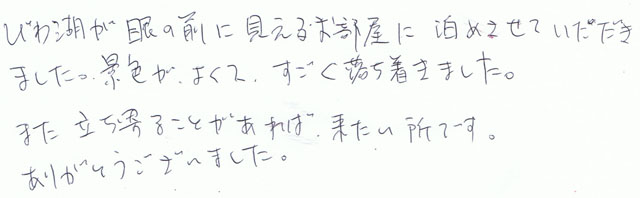 びわ湖が眼の前に見えるお部屋に泊めさせていただき
ました。景色が、よくて、すごく落ち着きました。
また立ち寄ることがあれば、来たい所です。
ありがとうございました。